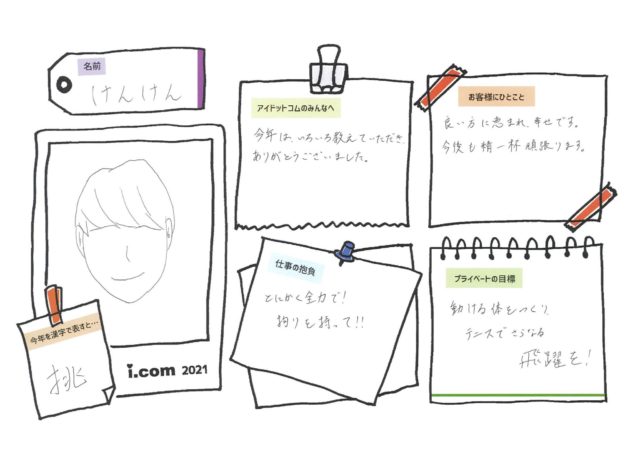 名前
けんけん
アイドットコムのみんなへ
今年は、いろいろ教えていただき
ありがとうございました。
お客様にひとこと
良い方に恵まれ、幸せです。
今後も精一杯頑張ります。
仕事の抱負
とにかく全力で!
拘りを持って!!
プライベートの目標
動ける体をつくり
テニスでさらなる
飛躍を!
今年を漢字で表すと…
挑
i.com 2021